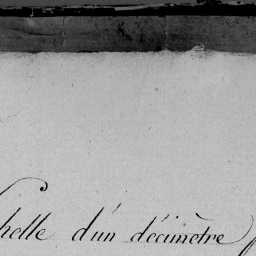 helle d'un décimètre